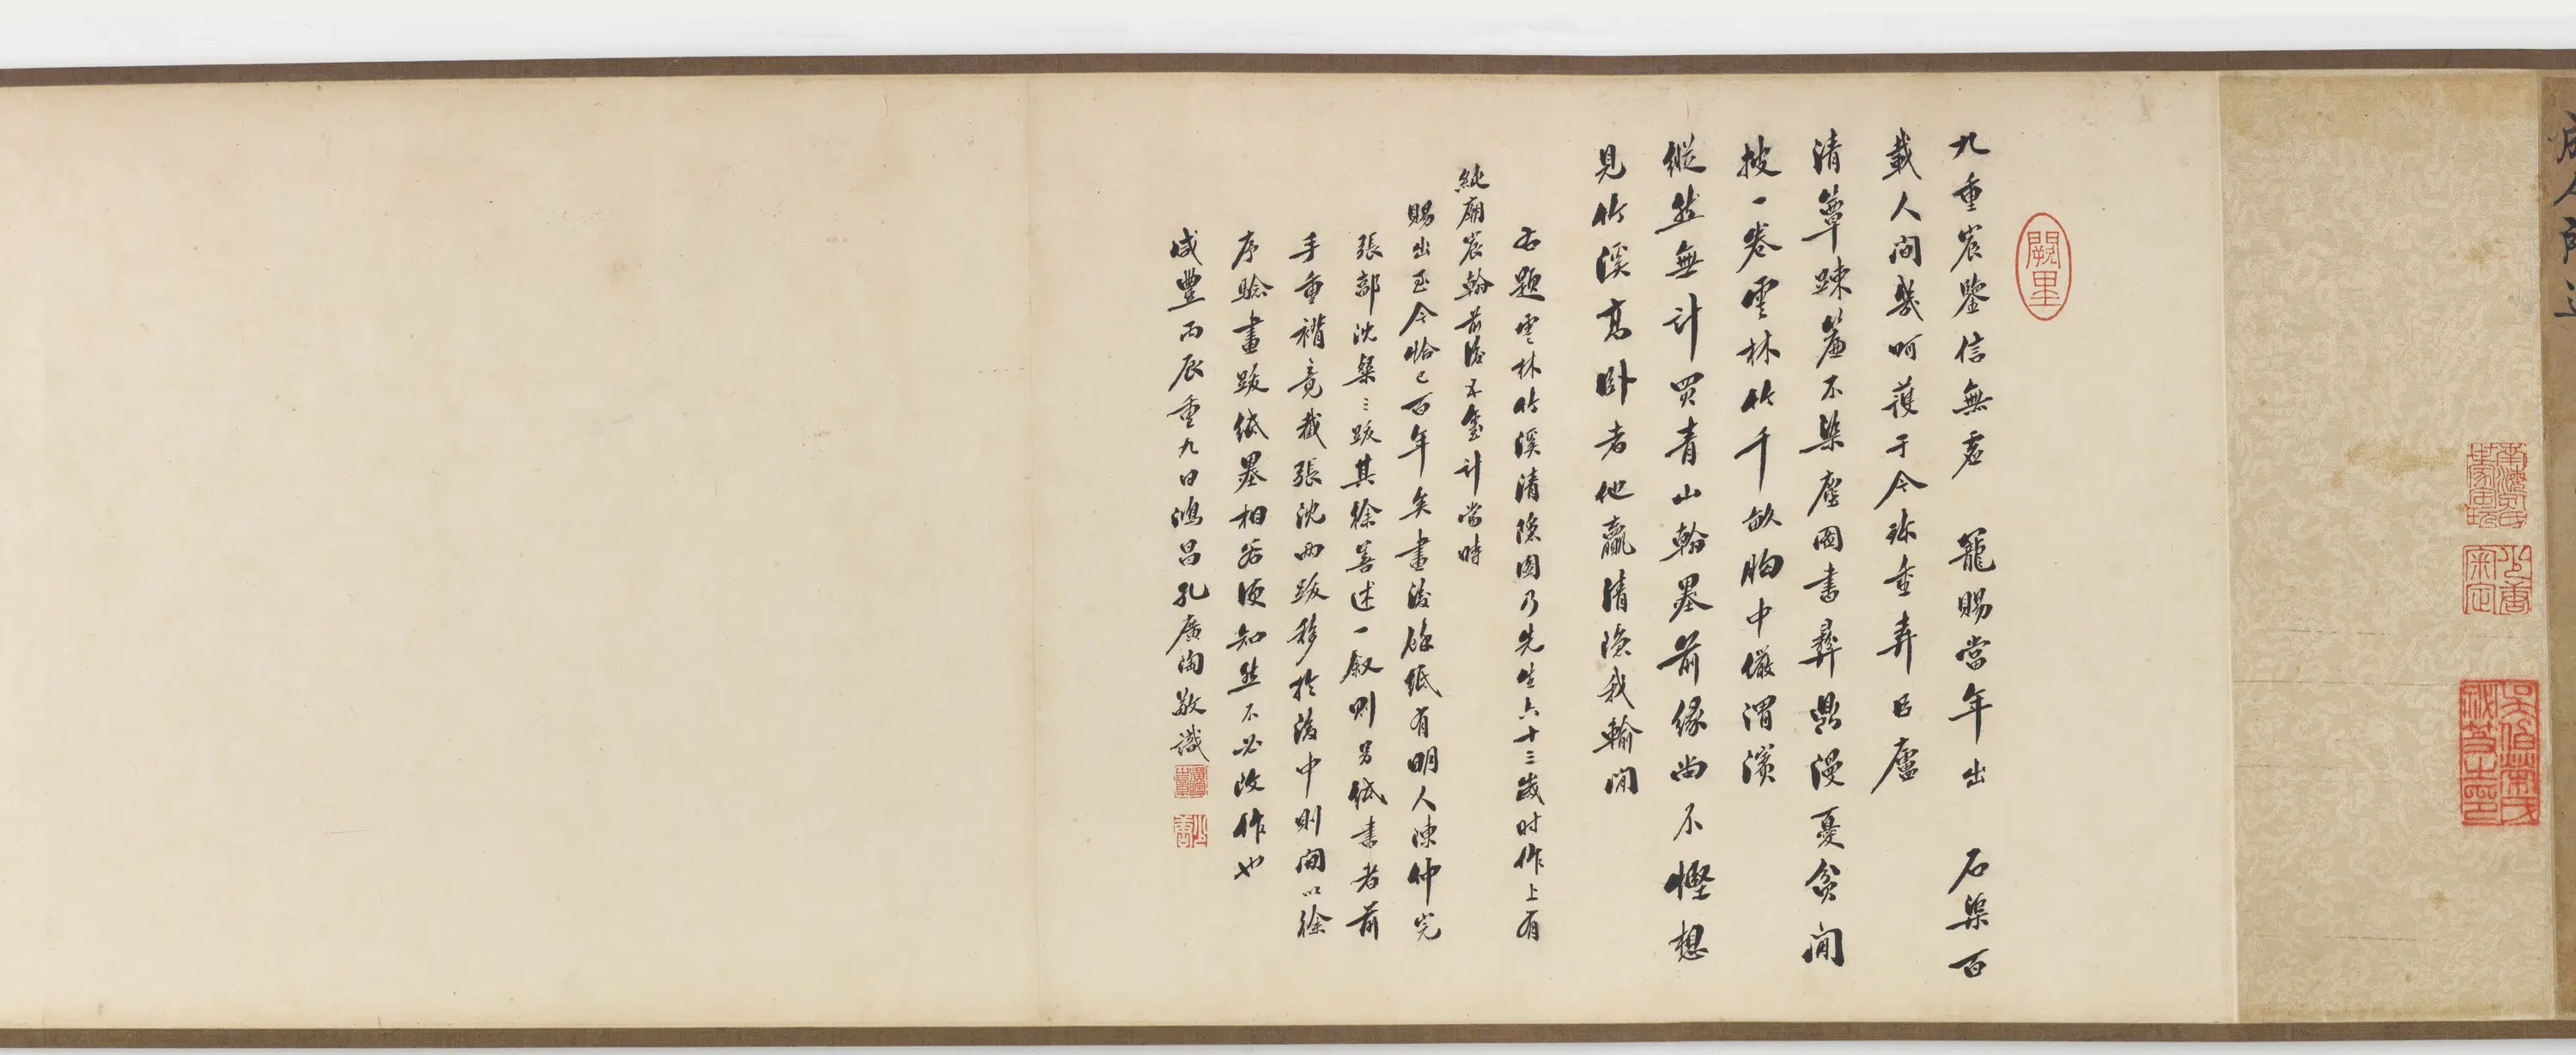 闕里
九重宸鑒信無虛 寵賜當年出 石渠百
載人間幾呵護于今珍重弆吾廬
清簟踈簾不染塵圖書彝鼎漫憂貧閒
披一卷雲林竹千畝胸中儼渭濱
縱然無計買青山翰墨前緣尚不慳想
見竹溪高卧者他贏清隱我輸閒
右題雲林竹溪清隱圖乃先生六十三歲时作上有
純廟宸翰前後不
計當時
賜出至今恰已百年矣畫後餘紙有明人陳仲完
張部沈粲三跋其徐善述一叙則另紙書者前
手重褙竟截張沈兩跋移於後中則間以徐
序驗畫跋紙墨相若便知然不必改作也
咸豐丙辰重九日鴻昌孔廣陶敬識